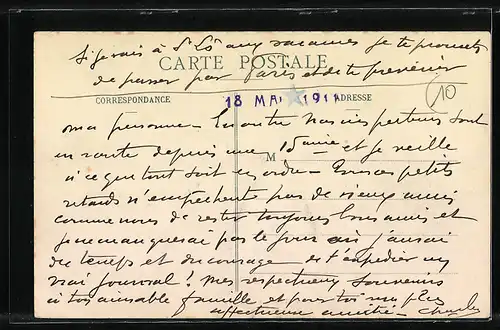 Si je vais à St Lô aux vacances je te promets
de passer par Paris et de te prévenir
CARTE POSTALE
CORRESPONDANCE
ADRESSE
18 MAI 1911
10
ma personne – En outre nos inspecteurs sont
en route depuis une 15aine et je veille
M
à ce que tout soit en ordre – Tous ces petits
retards n'empêchent pas de vieux amis
comme nous de rester toujours bons amis et
je ne manquerai pas le jour où j'aurai
du temps et du courage de t'expédier un
vrai journal! Mes respectueux souvenirs
à ton aimable famille et pour toi ma plus
affectueuse amitié – Charles